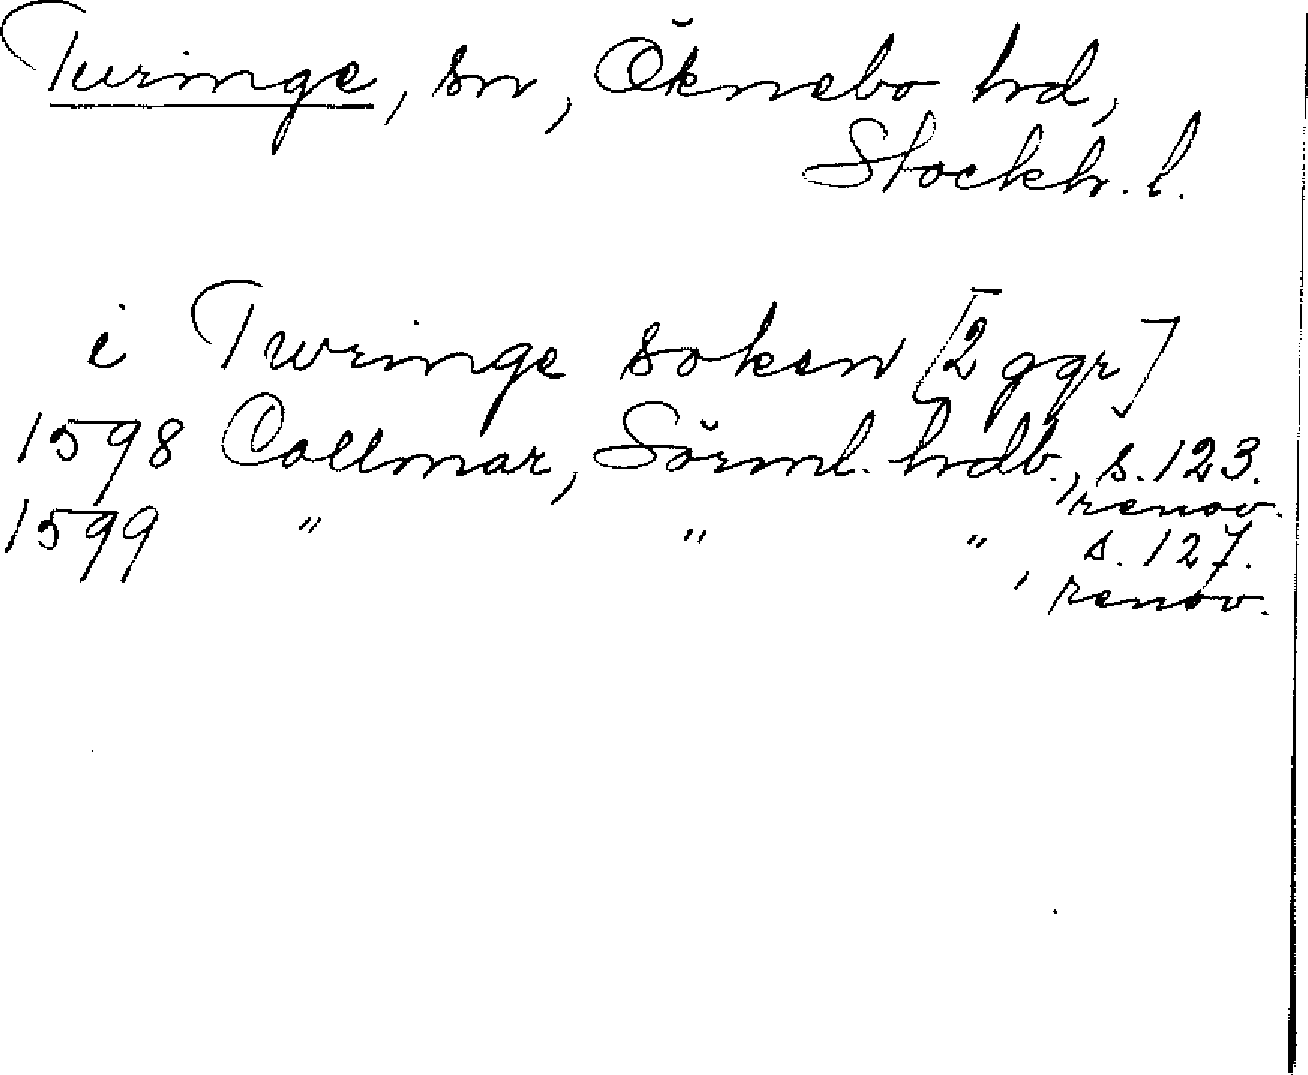 Turinge, sn, Öknebo hd,
Stockh. l.
i Twringe soken [2 ggr]
1598 Collmar, Sörml. hdb., s. 123.
renov.
1599 " " " , s. 127.
renov.